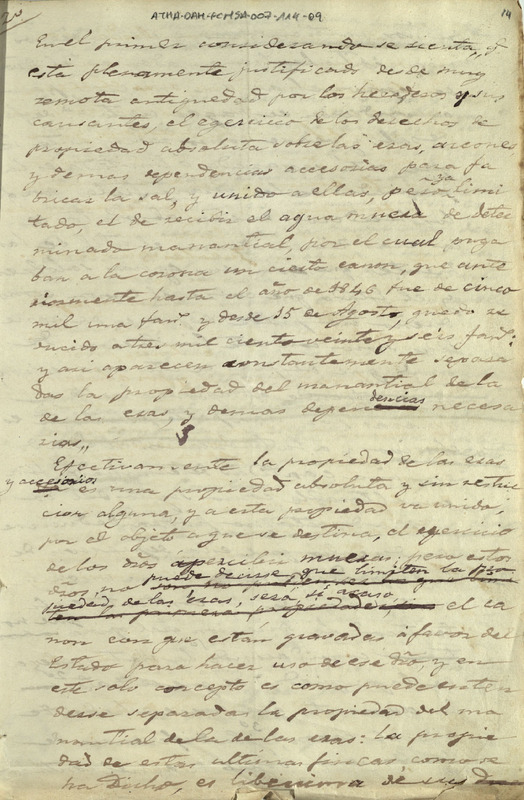 2º
ATHA-DAH-FCMSA-007-114-09
14
En el primer considerando se sienta, q.
está plenamente justificado desde muy
remota antiguedad por los herederos y sus
causantes, el egercicio de los derechos de
propiedad absoluta sobre las eras, arcones
y demas dependencias accesorias para fa
bricar la sal, y unido a ellas, pero limi
tado, el de recibir el agua muera de deter
minado manantial, por el cual paga
ban a la corona un cierto canon, que ante
riormente hasta el año de 1846 fue de cinco
mil una fan.s y desde 15 de Agosto, quedo re
ducido a tres mil ciento veinte y seis fan.s
y asi aparecen constantemente separa
das la propiedad del manantial de la
de las eras, y demas dependencias necesa
rias,,
Efectivamente la propiedad de las eras
y accesorios es una propiedad absoluta y sin restric
cion alguna, y a esta propiedad va unido,
por el objeto a que se destina, el egercicio
de los dros a percibir mueras; pero estos
dros, no puede decirse que limiten la pro
piedad de las eras, sera si acaso, el ca
non con que están gravadas á favor del
Estado para hacer uso de ese dro y en
este solo concepto es como puede enten
derse separada la propiedad del ma
nantial de la de las eras: la propie
dad de estas ultimas fincas, como se
ha dicho, es de sus